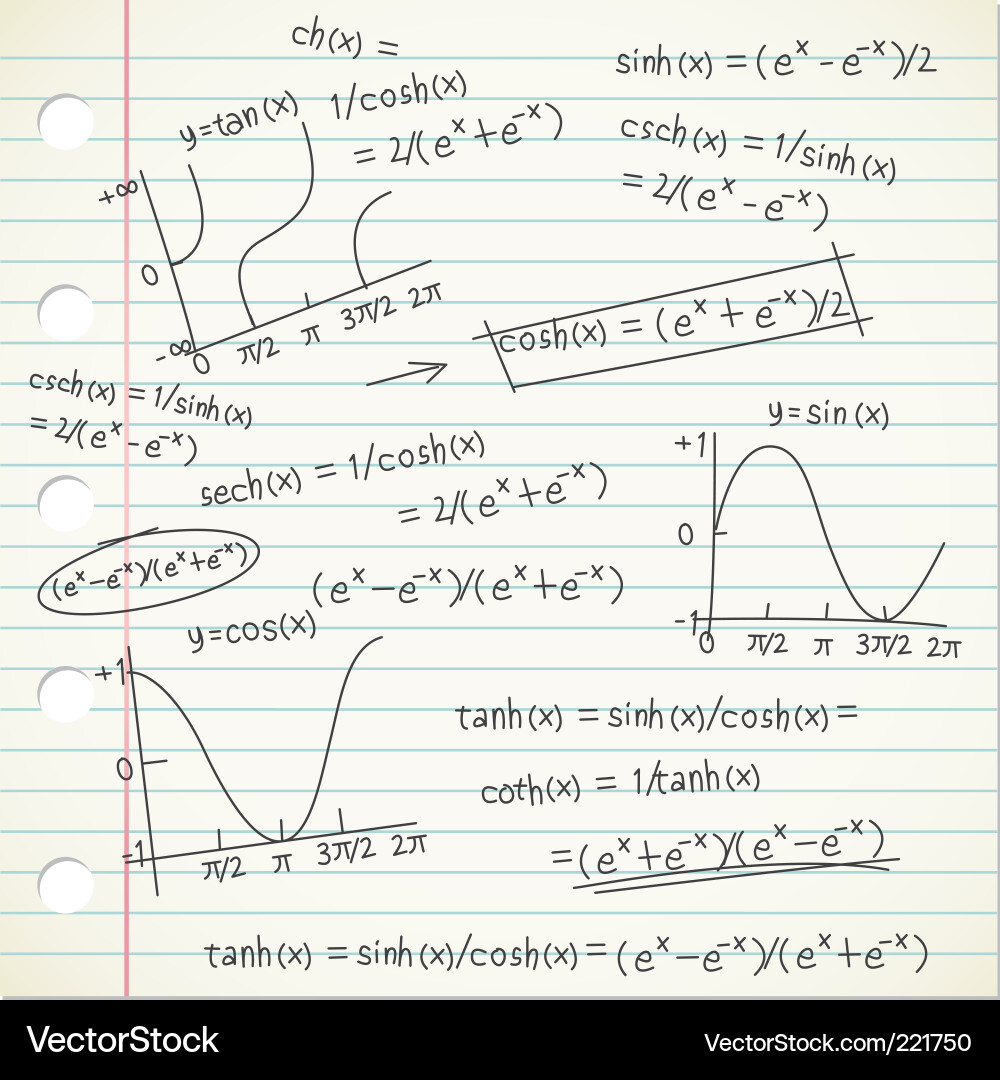 ch(x) =
1/cosh(x)
= 2/(eˣ+e⁻ˣ)
sinh(x) = (eˣ - e⁻ˣ)/2
csch(x) = 1/sinh(x)
= 2/(eˣ - e⁻ˣ)
y=tan(x)
+∞
0
-∞
0 π/2 π 3π/2 2π
cosh(x) = (eˣ + e⁻ˣ)/2
csch(x) = 1/sinh(x)
= 2/(eˣ - e⁻ˣ)
sech(x) = 1/cosh(x)
= 2/(eˣ+e⁻ˣ)
y=sin(x)
+1
0
-1
0 π/2 π 3π/2 2π
(eˣ-e⁻ˣ)/(eˣ+e⁻ˣ)
(eˣ-e⁻ˣ)/(eˣ+e⁻ˣ)
y=cos(x)
+1
0
-1
π/2 π 3π/2 2π
tanh(x) = sinh(x)/cosh(x) =
coth(x) = 1/tanh(x)
=(eˣ+e⁻ˣ)/(eˣ-e⁻ˣ)
tanh(x) = sinh(x)/cosh(x) = (eˣ-e⁻ˣ)/(eˣ+e⁻ˣ)
VectorStock
VectorStock.com/221750